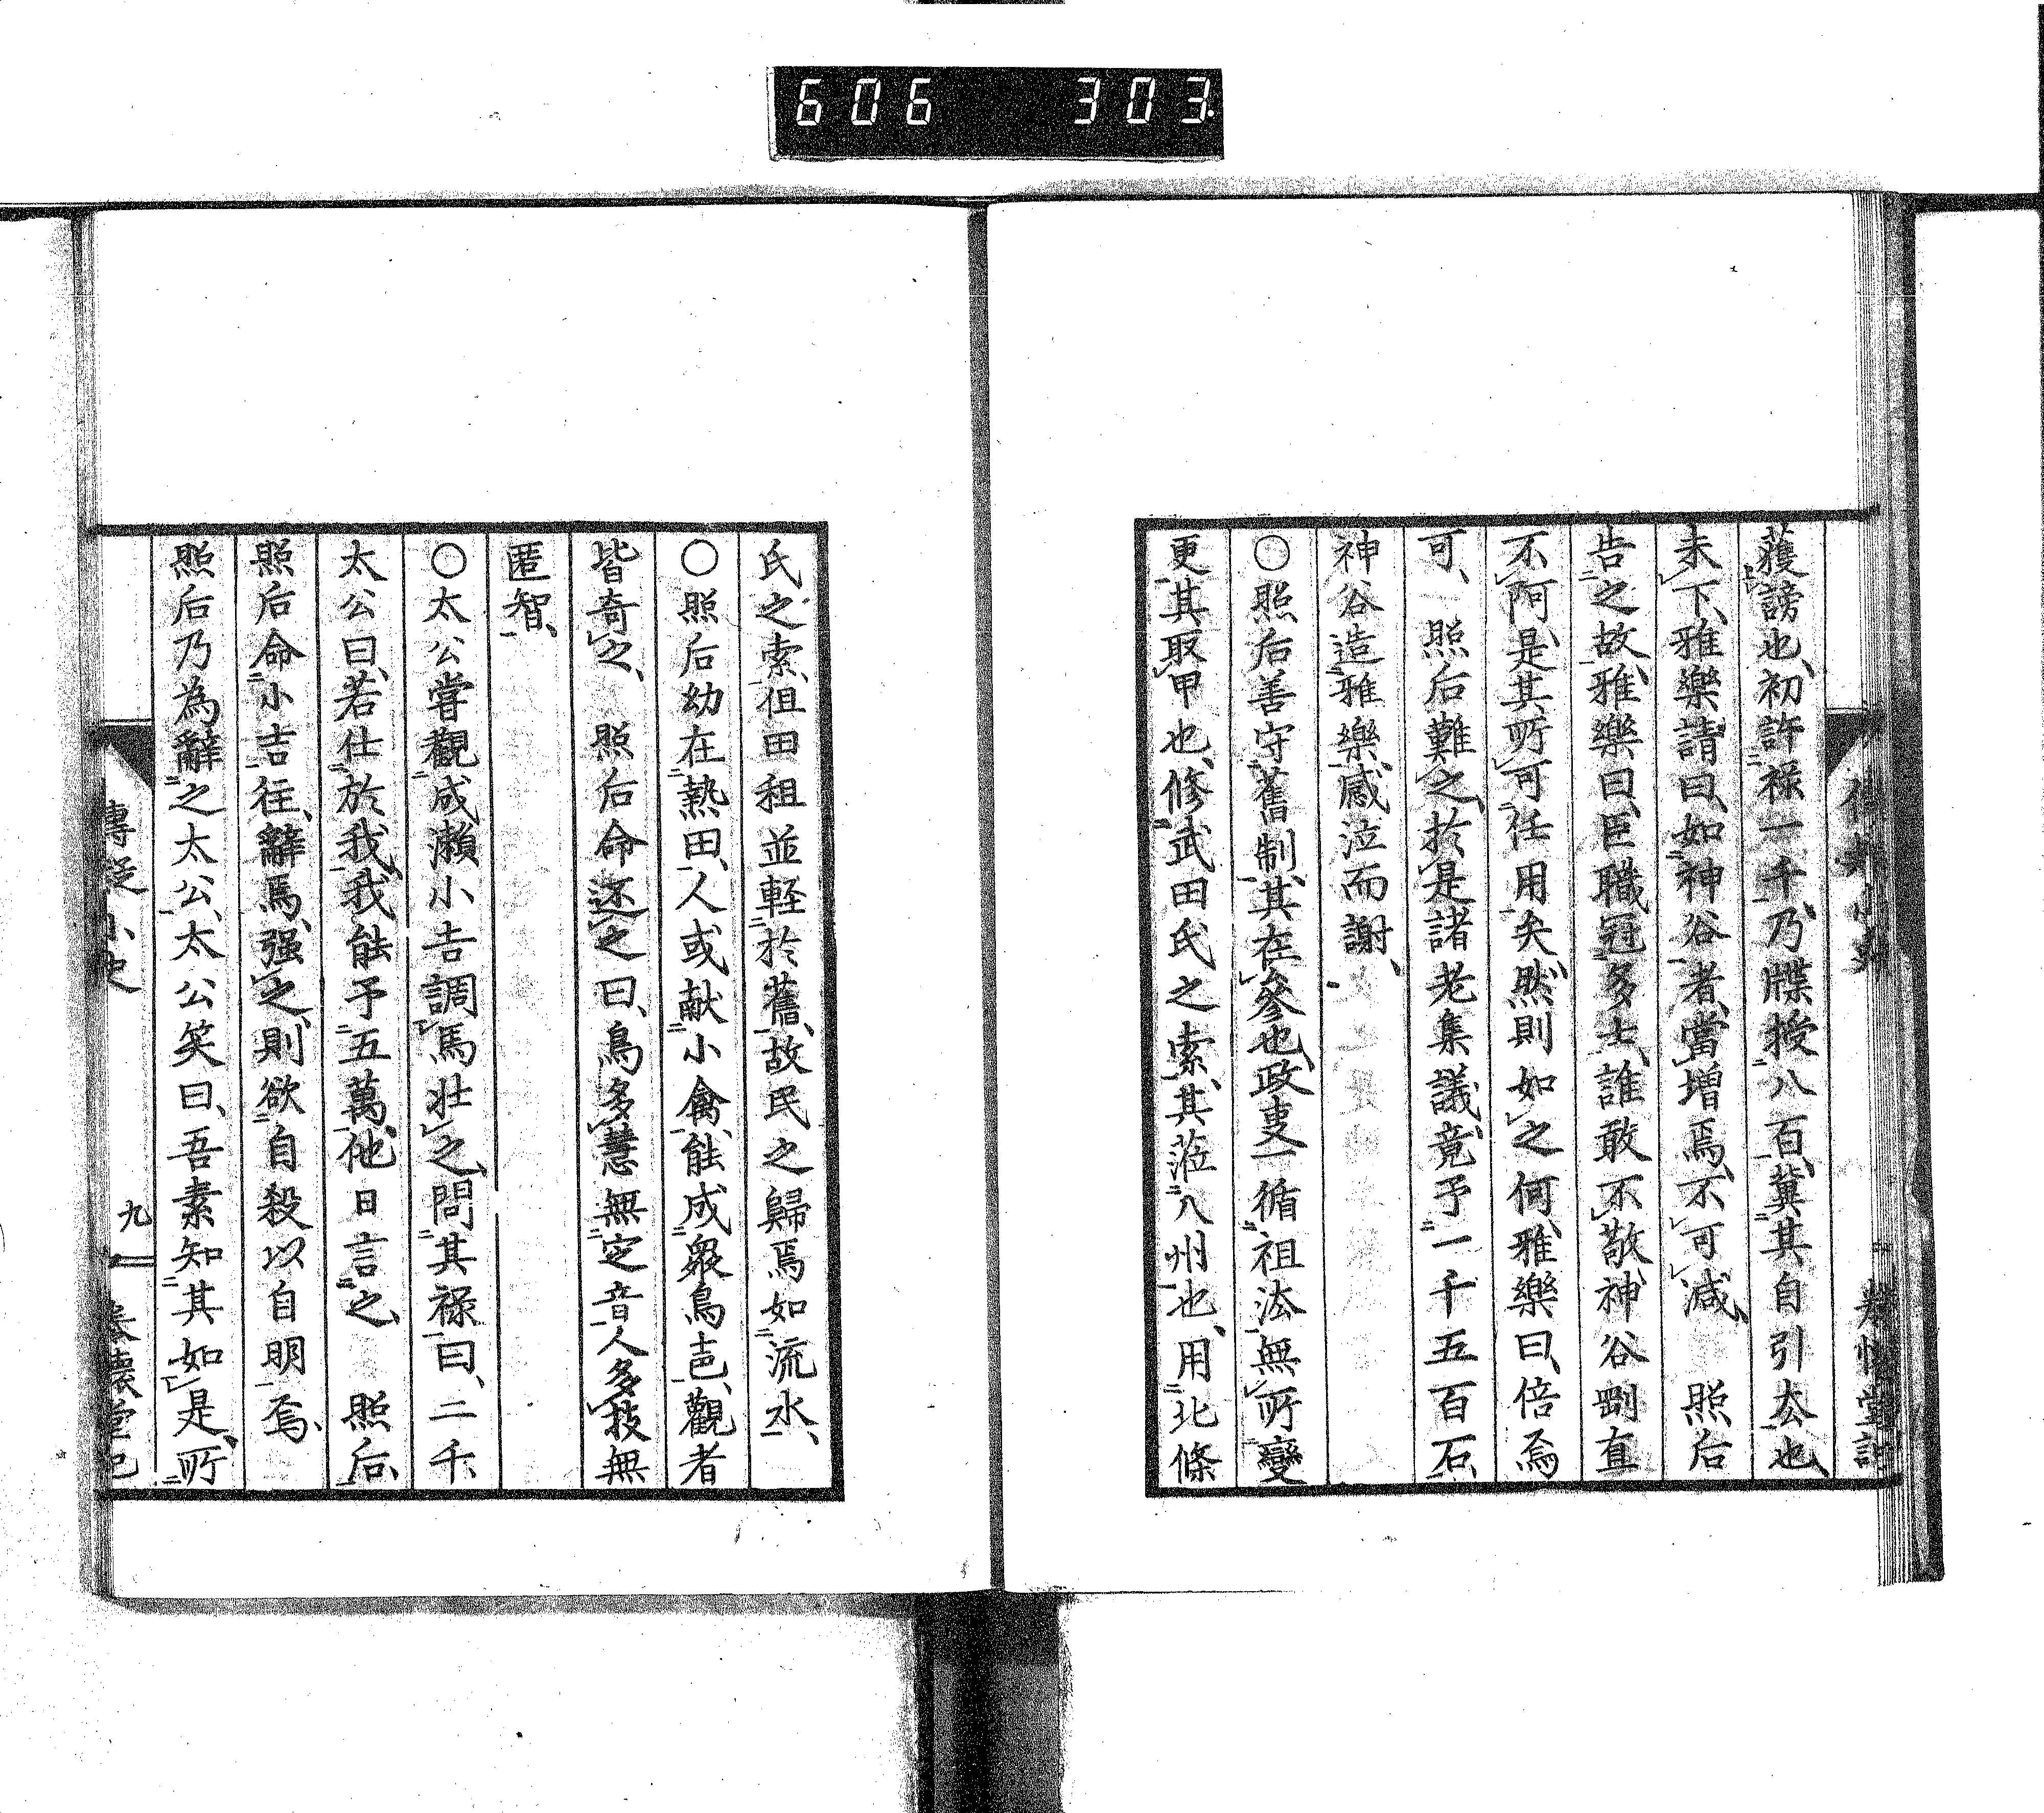 606 303
蒦謗也、初許祿一千、乃牒授八百、冀其自引厺也、
未下、雅樂請曰、如神谷者、當增焉、不可減、 照后
告之故、雅樂曰、臣職冠多士、誰敢不敬、神谷剛直
不阿、是其所可任用矣、然則如之何、雅樂曰、倍焉
可、 照后難之、於是諸老集議、竟予一千五百石、
神谷造雅樂、感泣而謝、
〇照后善守舊制、其在參也、政叓一循祖法、無所變
更其取甲也、修武田氏之索、其蒞八州也、用北條
氏之索、但田租並輕於舊、故民之歸焉如流水、
〇照后幼在熱田、人或献小禽、能成衆鳥㖓、觀者
皆奇之、 照后命还之曰、鳥多慧無定音、人多技無
匿智、
〇太公嘗觀成瀨小吉調馬壮之、問其祿、曰、二千、
太公曰、若仕於我、我能予五萬、他日言之 照后、
照后命小吉往、辭焉、强之、則欲自殺以自明焉、
照后乃為辭之太公、太公笑曰、吾素知其如是、所
傳疑小史 九